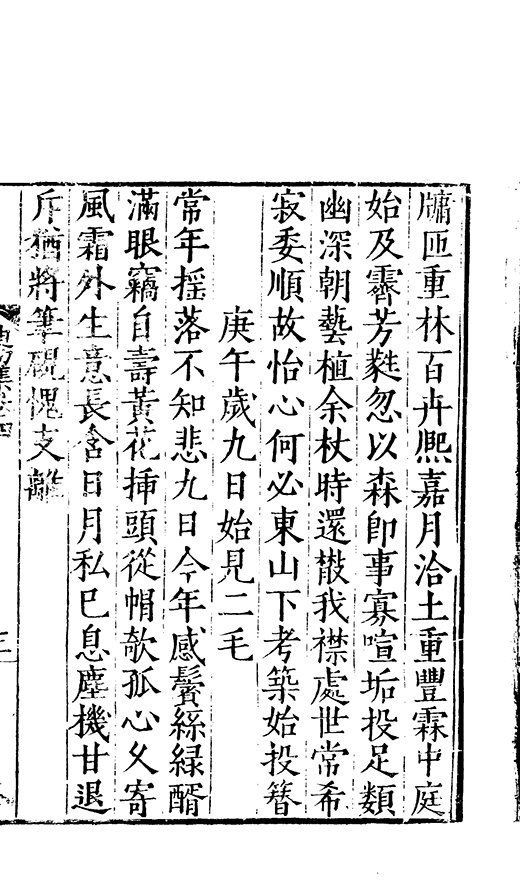 牖匝重林百卉熈嘉月洽土重豐霖中庭
始及霽芳蕤忽以森卽事寡喧垢投足類
幽深朝藝植余杖時還㪚我襟處世常希
寂委順故怡心何必東山下考築始投簪
庚午歲九日始見二毛
常年揺落不知悲九日今年感鬢絲緑醑
滿眼竊自壽黃花揷頭從帽欹孤心乆寄
風霜外生意長含日月私巳息塵機甘退
斥猶將筆硯愧支離